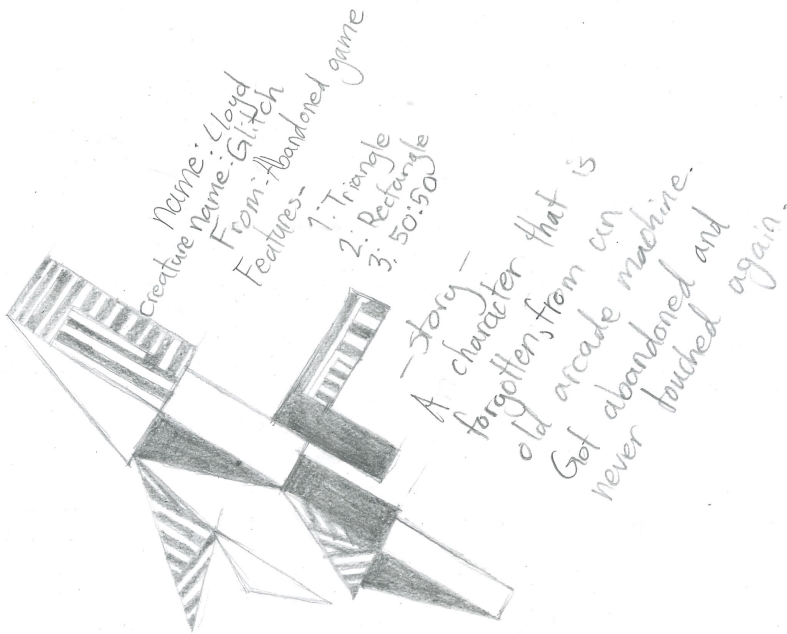 name: Lloyd
Creature name: Glitch
From: Abandoned game
Features-
1: Triangle
2: Rectangle
3: 50:50
- Story -
A character that is
forgotten, from an
old arcade machine.
Got abandoned and
never touched again.